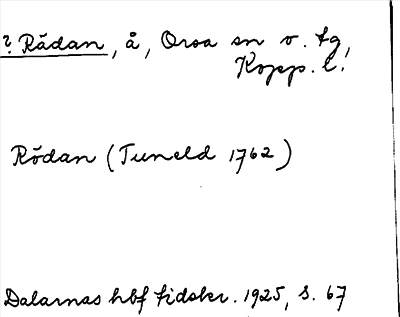 ? Rådan, å, Orsa sn o. tg,
Kopp. l.
Rödan (Tuneld 1762)
Dalarnas hbf tidskr. 1925, s. 67